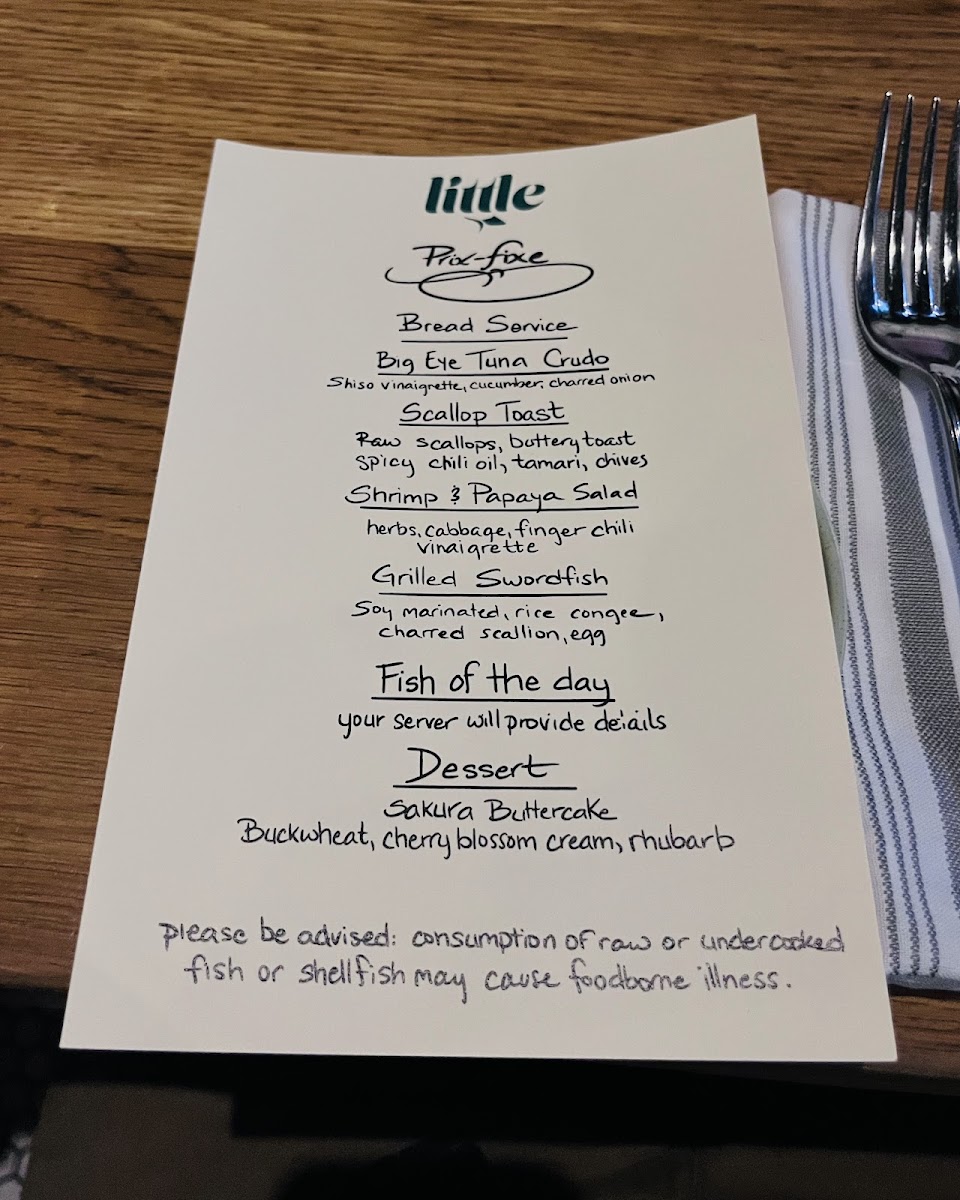 little
Prix-fixe
Bread Service
Big Eye Tuna Crudo
Shiso vinaigrette, cucumber, charred onion
Scallop Toast
Raw scallops, buttery toast
spicy chili oil, tamari, chives
Shrimp & Papaya Salad
herbs, cabbage, finger chili
vinaigrette
Grilled Swordfish
Soy marinated, rice congee,
charred scallion, egg
Fish of the day
your server will provide details
Dessert
Sakura Buttercake
Buckwheat, cherry blossom cream, rhubarb
please be advised: consumption of raw or undercooked
fish or shellfish may cause foodborne illness.